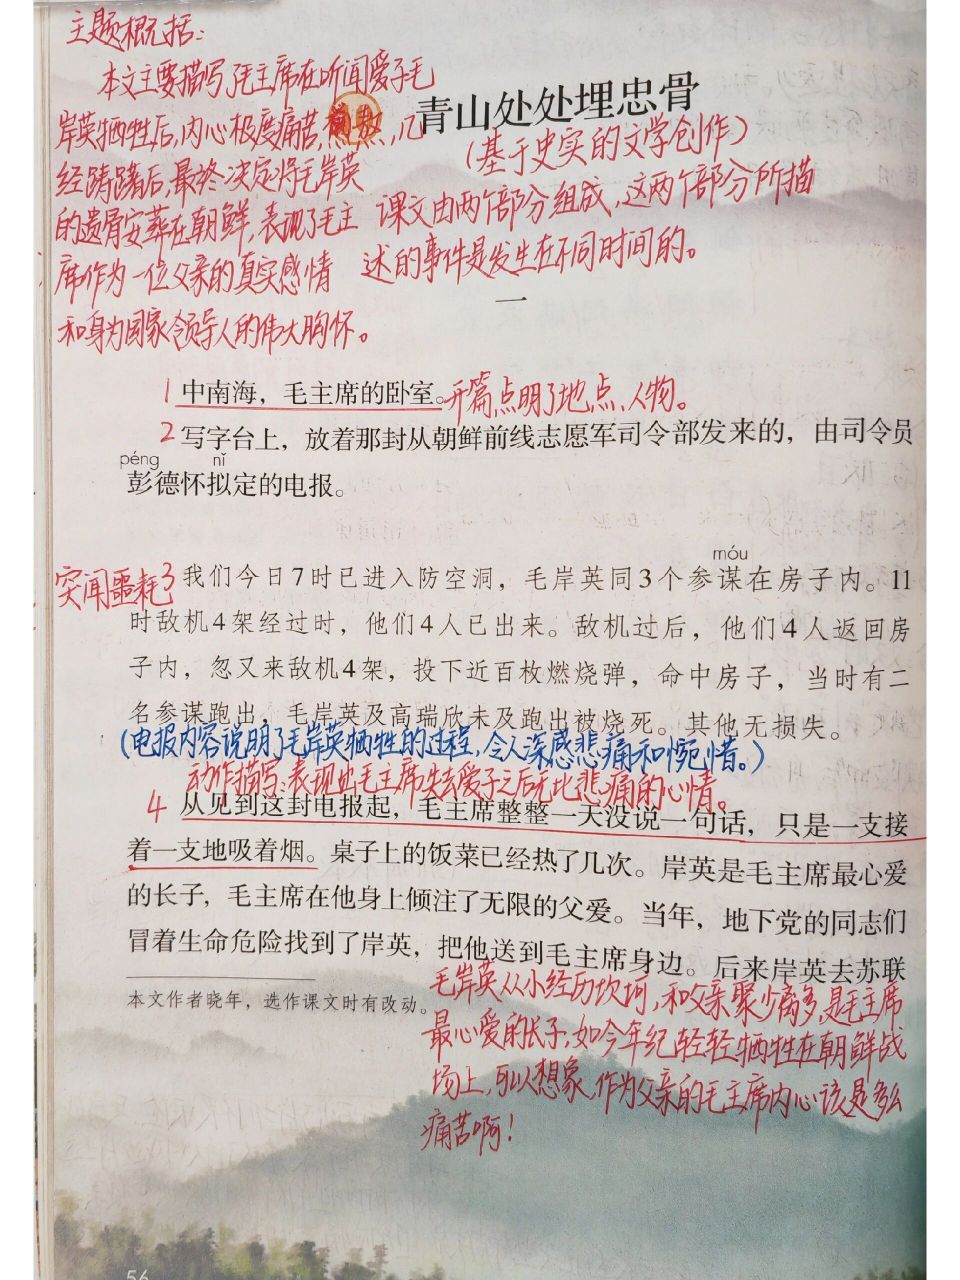 主题概括:
本文主要描写了毛主席在听闻爱子毛
岸英牺牲后,内心极度痛苦,几
经踌躇后,最终决定将毛岸英
的遗骨安葬在朝鲜,表现了毛主
席作为一位父亲的真实感情
和身为国家领导人的伟大胸怀。
青山处处埋忠骨
(基于史实的文学创作)
课文由两个部分组成,这两个部分所描
述的事件是发生在不同时间的。
一
1 中南海,毛主席的卧室。开篇点明了地点、人物。
2 写字台上,放着那封从朝鲜前线志愿军司令部发来的,由司令员
péng nǐ
彭德怀拟定的电报。
móu
突闻噩耗 3 我们今日7时已进入防空洞,毛岸英同3个参谋在房子内。11
时敌机4架经过时,他们4人已出来。敌机过后,他们4人返回房
子内,忽又来敌机4架,投下近百枚燃烧弹,命中房子,当时有二
名参谋跑出,毛岸英及高瑞欣未及跑出被烧死。其他无损失。
(电报内容说明了毛岸英牺牲的过程,令人深感悲痛和惋惜。)
动作描写:表现出毛主席失去爱子之后无比悲痛的心情。
4 从见到这封电报起,毛主席整整一天没说一句话,只是一支接
着一支地吸着烟。桌子上的饭菜已经热了几次。岸英是毛主席最心爱
的长子,毛主席在他身上倾注了无限的父爱。当年,地下党的同志们
冒着生命危险找到了岸英,把他送到毛主席身边。后来岸英去苏联
本文作者晓年,选作课文时有改动。
毛岸英从小经历坎坷,和父亲聚少离多,是毛主席
最心爱的长子,如今年纪轻轻牺牲在朝鲜战
场上,可以想象,作为父亲的毛主席内心该是多么
痛苦啊!
56